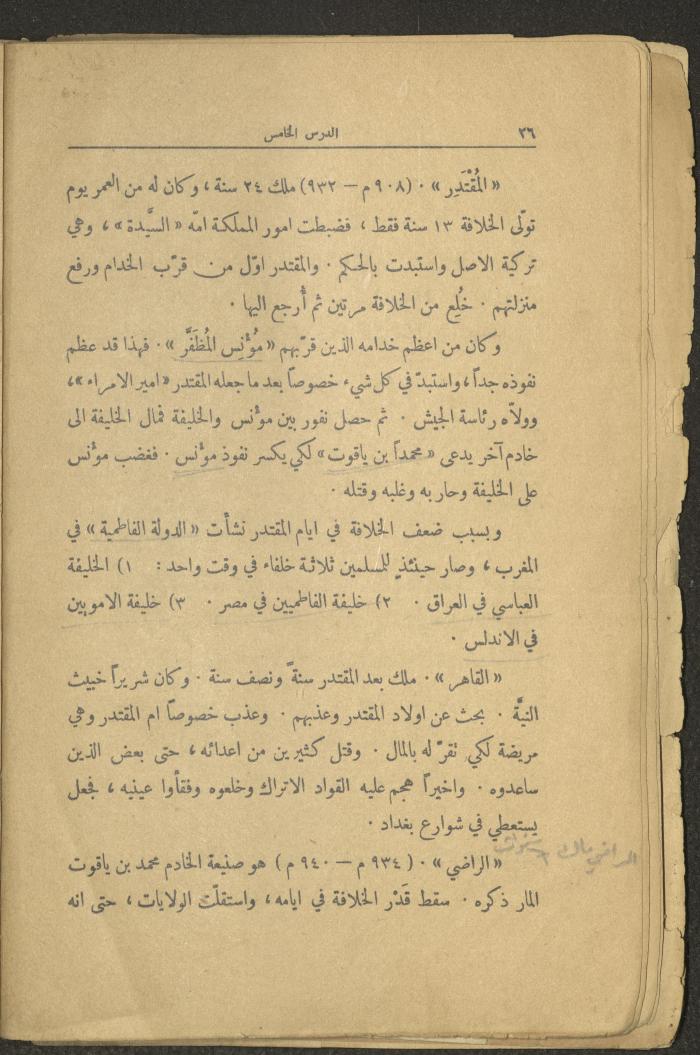 ٣٦ الدرس الخامس
« المُقْتَدِر » ٠ (٩٠٨ م — ٩٣٢) ملك ٢٤ سنة ، وكان له من العمر يوم
تولّى الخلافة ١٣ سنة فقط ، فضبطت امور المملكة امّه « السَّيدة » ، وهي
تركية الاصل واستبدت بالحكم ٠ والمقتدر اوّل من قرّب الخدام ورفع
منزلتهم ٠ خُلِع من الخلافة مرتين ثم أُرجع اليها ٠
وكان من اعظم خدامه الذين قرّبهم « مُؤْنِس المُظَفَّر » ٠ فهذا قد عظم
نفوذه جداً ، واستبدّ في كل شيء خصوصاً بعد ما جعله المقتدر « امير الامراء » ،
وولاّه رئاسة الجيش ٠ ثم حصل نفور بين مؤنس والخليفة فمال الخليفة الى
خادم آخر يدعى « محمداً بن ياقوت » لكي يكسر نفوذ مؤنس ٠ فغضب مؤنس
على الخليفة وحاربه وغلبه وقتله ٠
وبسبب ضعف الخلافة في ايام المقتدر نشأت « الدولة الفاطمية » في
المغرب ، وصار حينئذٍ للمسلمين ثلاثة خلفاء في وقت واحد : ١) الخليفة
العباسي في العراق ٠ ٢) خليفة الفاطميين في مصر ٠ ٣) خليفة الامويين
في الاندلس ٠
« القاهر » ٠ ملك بعد المقتدر سنةً ونصف سنة ٠ وكان شريراً خبيث
النيَّة ٠ بحث عن اولاد المقتدر وعذبهم ٠ وعذب خصوصاً ام المقتدر وهي
مريضة لكي تقرّ له بالمال ٠ وقتل كثيرين من اعدائه ، حتى بعض الذين
ساعدوه ٠ واخيراً هجم عليه القواد الاتراك وخلعوه وفقأوا عينيه ، فجعل
يستعطي في شوارع بغداد ٠
الراضي ملك ٦ سنوات
« الراضي » ٠ ( ٩٣٤ م — ٩٤٠ م ) هو صنيعة الخادم محمد بن ياقوت
المار ذكره ٠ سقط قَدْر الخلافة في ايامه ، واستقلّت الولايات ، حتى انه